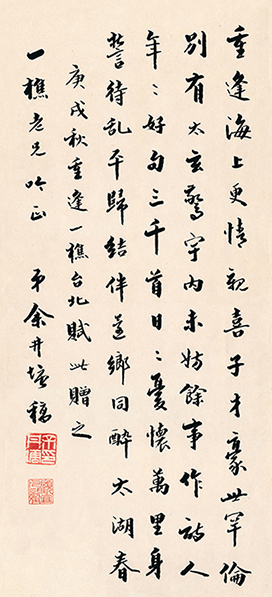 重逢海上更情親喜子才豪世罕倫
別有太玄驚宇內未妨餘事作詩人
年〻好句三千首日〻憂懷萬里身
誓待乱平歸結伴鄉同醉太湖春
庚戌秋重逢一樵台北賦此贈之
一樵老兄吟正 弟余井塘稿